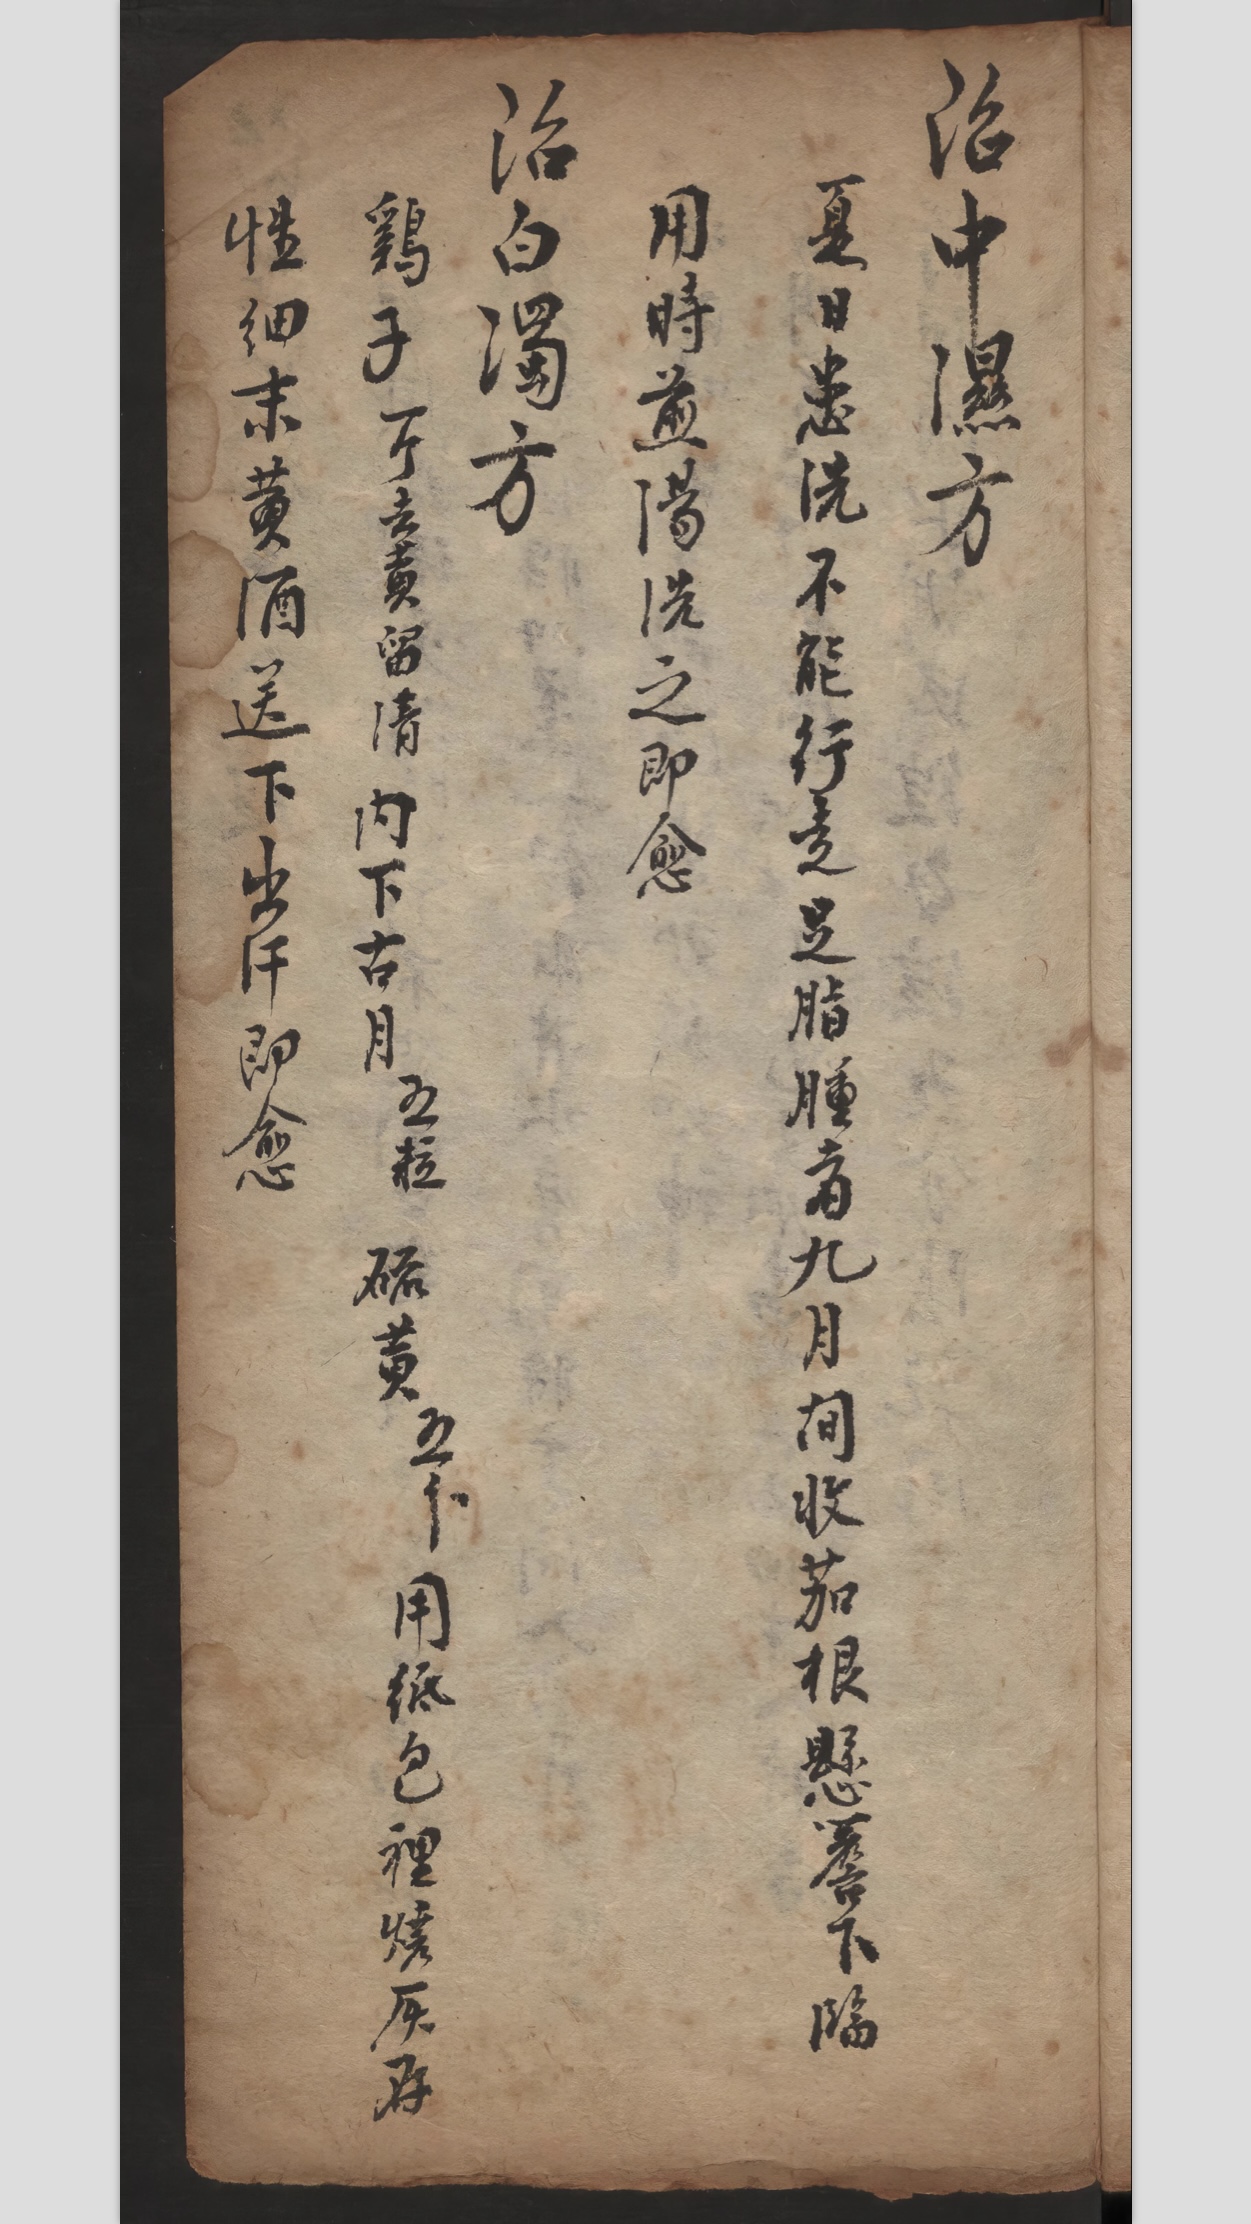 治中濕方
夏日患洗不能行走足脂腫看九月間收茄根懸簷下臨
用時煎湯洗之即愈
治白濁方
鷄子一个去黄留清内下古月五粒硫黄五卜用紙包裡燒灰存
性細末黄酒送下出汗即愈